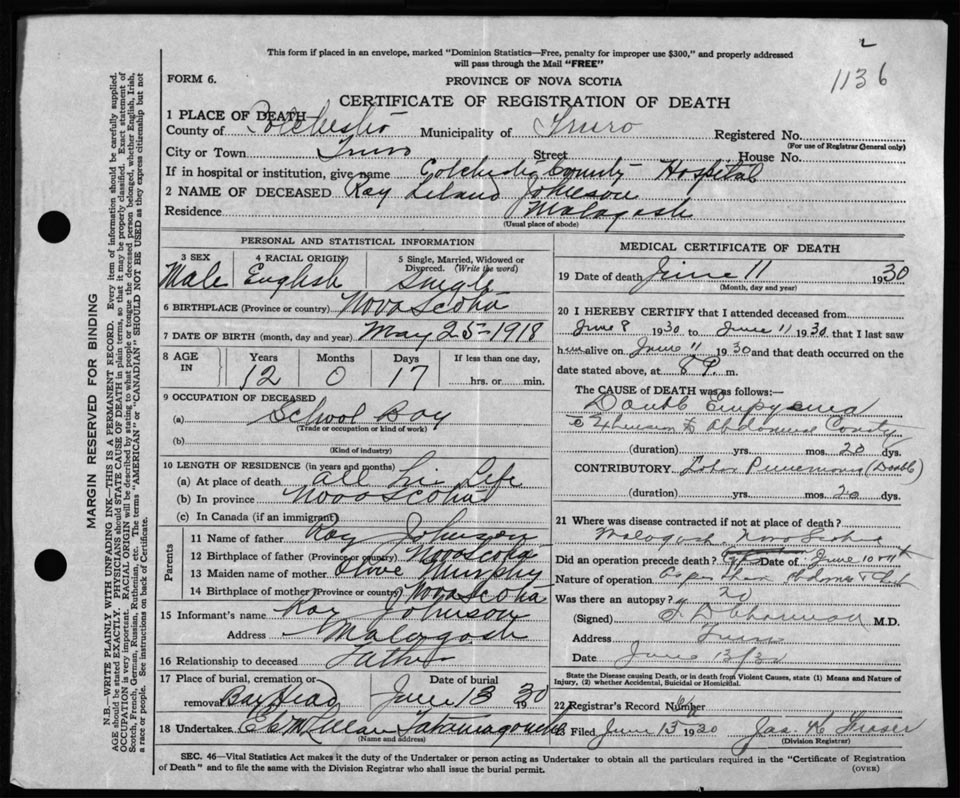 This form if placed in an envelope, marked "Dominion Statistics—Free, penalty for improper use $300," and properly addressed
will pass through the Mail "FREE"
1136
FORM 6.
PROVINCE OF NOVA SCOTIA
CERTIFICATE OF REGISTRATION OF DEATH
1 PLACE OF DEATH
County of Colchester Municipality of Truro Registered No.
(For use of Registrar General only)
City or Town Truro Street House No.
If in hospital or institution, give name Colchester County Hospital
2 NAME OF DECEASED Ray Leland Johnson
Residence Malagash
(Usual place of abode)
PERSONAL AND STATISTICAL INFORMATION
3 SEX Male
4 RACIAL ORIGIN English
5 Single, Married, Widowed or Divorced. (Write the word) Single
6 BIRTHPLACE (Province or country) Nova Scotia
7 DATE OF BIRTH (month, day and year) May 25-1918
8 AGE IN Years Months Days If less than one day,
12 0 17 hrs. or min.
9 OCCUPATION OF DECEASED
(a) School Boy
(Trade or occupation or kind of work)
(b)
(Kind of industry)
10 LENGTH OF RESIDENCE (in years and months)
(a) At place of death all his Life
(b) In province Nova Scotia
(c) In Canada (if an immigrant)
Parents
11 Name of father Ray Johnson
12 Birthplace of father (Province or country) Nova Scotia
13 Maiden name of mother Olive Murphy
14 Birthplace of mother (Province or country) Nova Scotia
15 Informant's name Ray Johnson
Address Malagash
16 Relationship to deceased Father
17 Place of burial, cremation or removal Bay Head
Date of burial June 13 1930
18 Undertaker Tatamagouche
(Name and address)
MEDICAL CERTIFICATE OF DEATH
19 Date of death June 11 1930
(Month, day and year)
20 I HEREBY CERTIFY that I attended deceased from
June 8 1930 to June 11 1930 that I last saw
him alive on June 11 1930 and that death occurred on the
date stated above, at 8 P. m.
The CAUSE OF DEATH was as follows:
Double Empyema
Extension to Abdominal Cavity
(duration) yrs. mos. 20 dys.
CONTRIBUTORY. Lobar Pneumonia (Double)
(duration) yrs. mos. 20 dys.
21 Where was disease contracted if not at place of death?
Malagash Nova Scotia
Did an operation precede death? Date of June 10
Nature of operation
Was there an autopsy? no
(Signed) M.D.
Address Truro
Date June 13/30
State the Disease causing Death, or in death from Violent Causes, state (1) Means and Nature of
Injury, (2) whether Accidental, Suicidal or Homicidal.
22 Registrar's Record Number
23 Filed June 13 1930 Jas. H Fraser
(Division Registrar)
SEC. 46—Vital Statistics Act makes it the duty of the Undertaker or person acting as Undertaker to obtain all the particulars required in the "Certificate of Registration
of Death" and to file the same with the Division Registrar who shall issue the burial permit.
(OVER)
MARGIN RESERVED FOR BINDING
N.B.—WRITE PLAINLY WITH UNFADING INK—THIS IS A PERMANENT RECORD. Every item of information should be carefully supplied.
AGE should be stated EXACTLY. PHYSICIANS should STATE CAUSE OF DEATH in plain terms, so that it may be properly classified. Exact statement of
OCCUPATION is very important. RACIAL ORIGIN will be described by stating to what people or tongue the deceased person belonged, whether English, Irish,
Scotch, French, German, Russian, Ruthenian, etc. The terms "AMERICAN" or "CANADIAN" SHOULD NOT BE USED as they express citizenship but not
a race or people. See instructions on back of Certificate.